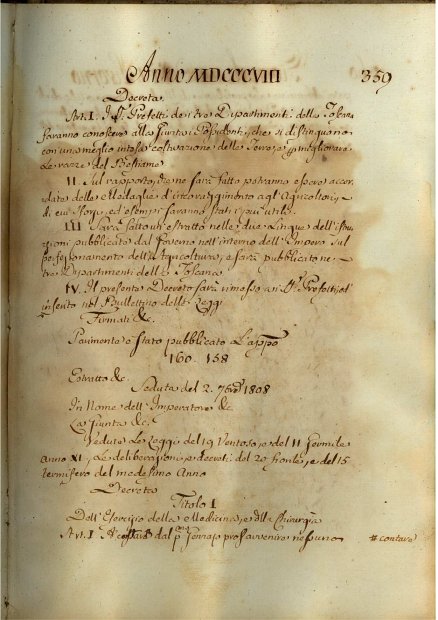 Anno MDCCCVIII 359
Decreta
Art. I. I SS. Prefetti dei tre Dipartimenti della Toscana
faranno conoscere alla Giunta i Possidenti, che si distinguono
con una meglio intesa coltivazione delle Terre, e migliorare
le razze del Bestiame
II. Sul rapporto, che ne sarà fatto potranno essere accor
date delle Medaglie d'incoraggimento agl'Agricoltori,
i cui sforzi, ed esempi saranno stati i più utili.
III Sarà fatto un estratto nelle due Lingue dell'istru
zioni pubblicate dal Governo nell'interno dell'Impero sul
perfezionamento dell'Agricoltura, e sarà pubblicato ne
tre Dipartimenti della Toscana
IV. Il presente Decreto sarà rimesso ai SS. Prefetti, ed
inserito nel Bullettino delle Leggi
Firmati &c.
Parimente è stato pubblicato l'appo
160. 158
Estratto &c
Seduta del 2. 7bre 1808
In Nome dell'Imperatore &c
La Giunta &c.
Vedute le Leggi del 19 Ventoso, e del 11 Germile
Anno XI, le deliberazioni, e decreti del 20 , e del 15
termifero del medesimo Anno
Decreta
Titolo I
Dell'Esercizio della Medicina, e della Chirurgia
Art. I A del pmo avvenire nessuno # contare